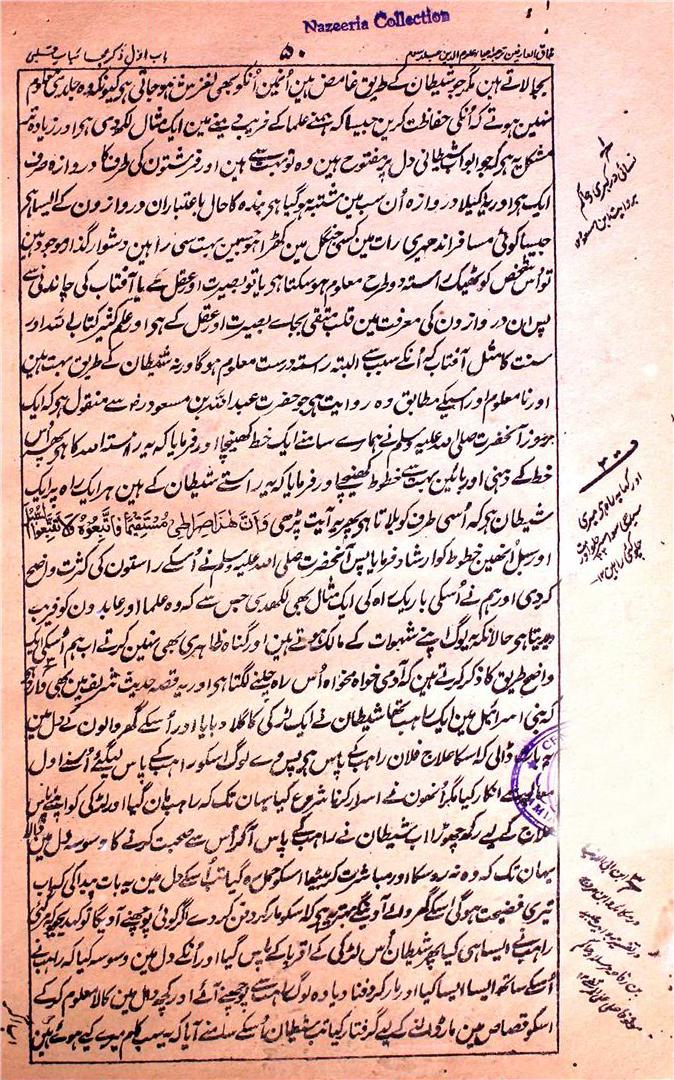 Nazeeria Collection
مذاق العارفین ترجمہ احیاء علوم الدین جلد سوم
۵۰
باب اول ذکر عجائبات قلبی
بجا لاتے ہین مگر جو شیطان کے طریق غامض ہین اُنمین اُنکو بھی لغزش ہو جاتی ہی کیونکہ وہ جلدی معلوم
نہین ہوتے کہ اُنکی حفاظت کرین جیسا کہ ہمنے علما کے فریب دینے مین ایک مثال لکھدی ہی اور زیادہ تر
مشکل یہ ہی کہ جو ابواب شیطانی دل پر مفتوح ہین وہ تو بہت سے ہین اور فرشتون کی طرف کا دروازہ صرف
ایک ہی اور یہ اکیلا دروازہ اُن سب مین مشتبہ ہو گیا ہی بندہ کا حال باعتبار ان دروازون کے ایسا ہی
جیسا کوئی مسافر اندھیری رات مین کسی جنگل مین کھڑا ہو جسمین بہت سی راہین دشوار گذار موجود ہین
تو اُس شخص کو ٹھیک راستہ دو طرح معلوم ہو سکتا ہی یا تو بصیرت اور عقل سے یا آفتاب کی چاندنی سے
پس ان دروازون کی معرفت مین قلب متقی بجاے بصیرت اور عقل کے ہی اور علم کثیر کتاب اللہ اور
سنت کا مثل آفتاب کہ اُنکے سبب سے البتہ رستہ درست معلوم ہوگا ورنہ شیطان کے طریق بہت ہین
اور نا معلوم اور اسیکے مطابق وہ روایت ہی جو حضرت عبد اللہ بن مسعود رض سے منقول ہی کہ ایک
روز آنحضرت صلی اللہ علیہ وسلم نے ہمارے سامنے ایک خط کھینچا اور فرمایا کہ یہ رستہ اللہ کا ہی پھر اُس
خط کے دہنی اور بائین بہت سے خطوط کھینچے اور فرمایا کہ یہ راستے شیطان کے ہین ہر ایک راہ پر ایک
شیطان ہی کہ اُسی طرف کو بلاتا ہی پھر یہ آیت پڑھی وَاَنَّ ھٰذَا صِرَاطِی مُسْتَقِیْمًا فَاتَّبِعُوْہُ وَلَا تَتَّبِعُوا السُّبُلَ
اور سبل اُنھین خطوط کو ارشاد فرمایا پس آنحضرت صلی اللہ علیہ وسلم نے اُسکے راستون کی کثرت واضح
کر دی اور ہم نے اُسکی باریک راہ کی ایک مثال بھی لکھدی جس سے کہ وہ علما اور عابدون کو فریب
دیتا ہی حالانکہ یہ لوگ اپنے شہوات کے مالک ہوتے ہین اور گناہ ظاہری بھی نہین کرتے اب ہم اُسکی ایک
واضح طریق کا ذکر کرتے ہین کہ آدمی خواہ مخواہ اُس راہ چلنے لگتا ہی اور یہ قصہ حدیث شریف مین بھی وارد ہی
کہ بنی اسرائیل مین ایک راہب تھا شیطان نے ایک لڑکی کا گلا دبایا اور اُسکے گھر والون نے دل مین
یہ بات ڈالی کہ اسکا علاج فلان راہب کے پاس ہی پس وے لوگ اسکو راہب کے پاس لیگئے اُسنے اول
معالجہ سے انکار کیا مگر اُنھون نے اسرار کرنا شروع کیا یہان تک کہ راہب مان گیا اور لڑکی کو اپنے پاس
علاج کے لیے رکھ چھوڑا اب شیطان نے راہب کے پاس آکر اُس سے صحبت کرنے کا وسوسہ دل مین ڈالا
یہان تک کہ وہ نہ روسکا اور مباشرت کر بیٹھا اسکو حمل رہ گیا تب اُسکے دل مین یہ بات پیدا کی کہ اب
تیری فضیحت ہوگی اسکے گھر والے آوینگے بہتر یہ ہی کہ اسکو مار کر دفن کر دے اگر کوئی پوچھنے آویگا تو کہدیجو کہ مر گئی
راہب نے ایسا ہی کیا پھر شیطان اُس لڑکی کے اقربا کے پاس گیا اور اُنکے دل مین وسوسہ کیا کہ راہب نے
اُسکے ساتھ ایسا ایسا کیا اور مار کر دفنا دیا وہ لوگ راہب سے پوچھنے آئے اور کچھ دال مین کالا معلوم کرکے
اسکو قصاص مین مار ڈالنے کے لیے گرفتار کیا تب شیطان اُسکے سامنے آیا کہ یہ سب کام میرے کیے ہوئے ہین
نسائی و دارمی و حاکم
بروایت ابن مسعود
اور کہا یہ راہ ہی میری
سیدھی سو اسپر چلو اور مت
چلو کئی راہین ۱۲